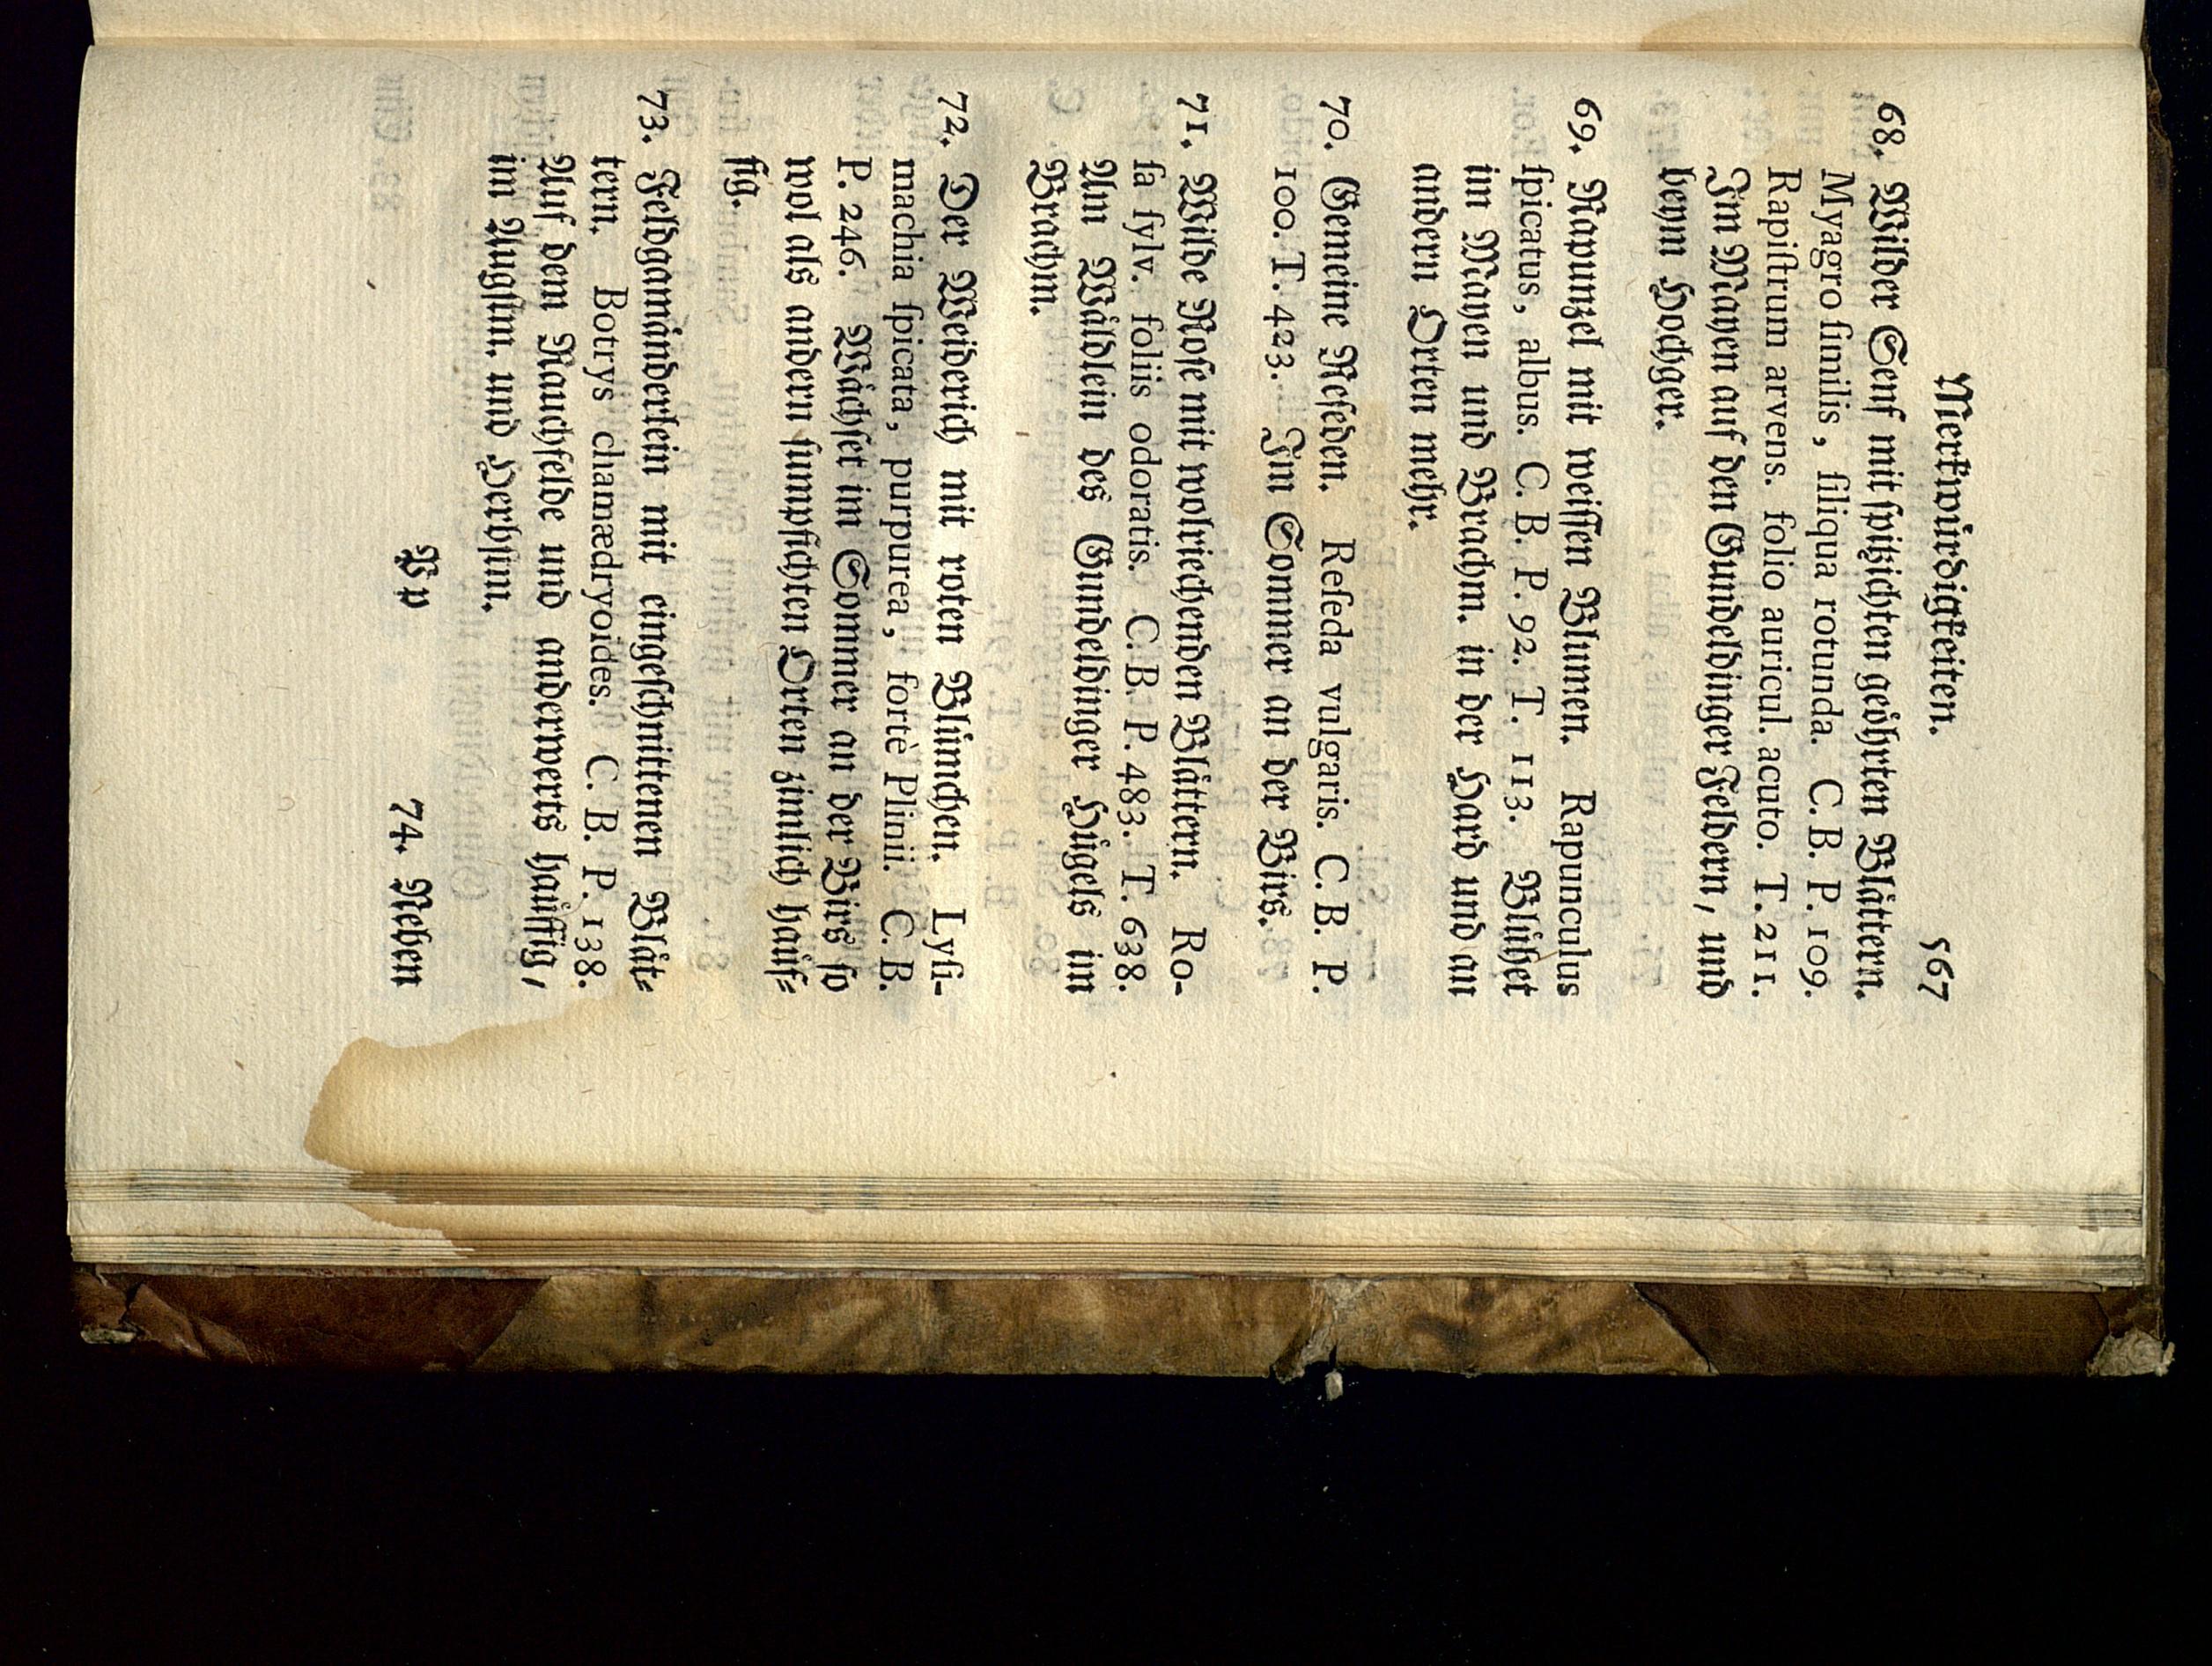 Merkwürdigkeiten. 567
68. Wilder Senf mit spitzichten geöhrten Blättern.
Myagro ſimilis, ſiliqua rotunda. C. B. P. 109.
Rapiſtrum arvens. folio auricul. acuto. T. 211.
Im Mayen auf den Gundeldinger Feldern, und
beym Hochger.
69. Rapunzel mit weiſſen Blumen. Rapunculus
ſpicatus, albus. C. B. P. 92. T. 113. Blühet
im Mayen und Brachm. in der Hard und an
andern Orten mehr.
70. Gemeine Reſeden. Reſeda vulgaris. C. B. P.
100. T. 423. Im Sommer an der Birs.
71. Wilde Roſe mit wolriechenden Blättern. Ro-
ſa ſylv. foliis odoratis. C. B. P. 483. T. 638.
Am Wäldlein des Gundeldinger Hügels im
Brachm.
72. Der Weiderich mit roten Blümchen. Lyſi-
machia ſpicata, purpurea, fortè Plinii. C. B.
P. 246. Wächſet im Sommer an der Birs ſo
wol als andern ſumpfichten Orten zimlich häuf-
fig.
73. Feldgamänderlein mit eingeſchnittenen Blät-
tern. Botrys chamædryoides. C. B. P. 138.
Auf dem Rauchfelde und anderwerts häuffig,
im Augſtm. und Herbſtm.
Pp 74. Reben